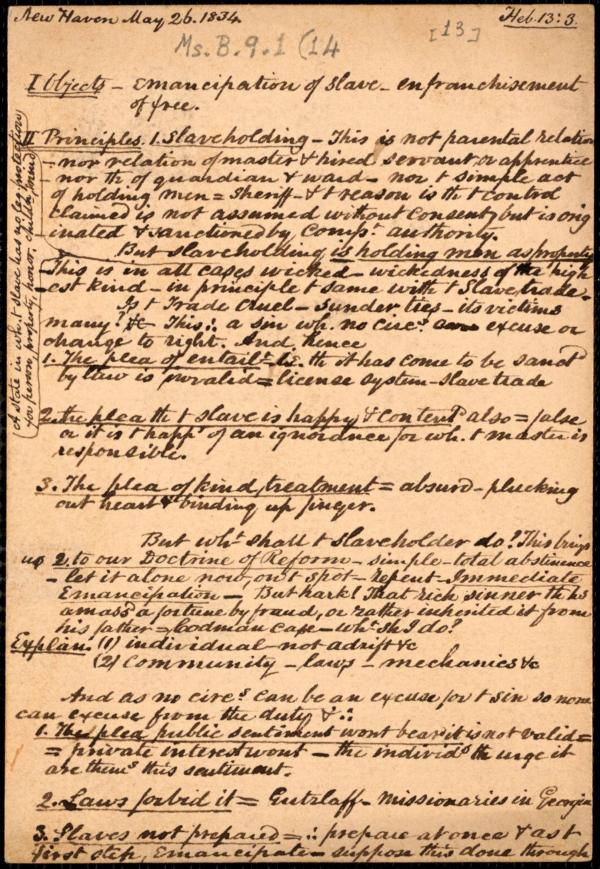 New Haven May 26. 1834. Heb. 13: 3.
Ms. B. 9. 1 (14 [13]
I Objects - Emancipation of slave - enfranchisement
of free.
II Principles. 1. Slaveholding - This is not parental relation
nor relation of master & hired servant or apprentice
nor th of guardian & ward - nor t simple act
of holding men = Sheriff - & t reason is th t control
claimed is not assumed without consent, but is orig
inated & sanctioned by comps. authority.
But slaveholding is holding men as property
This is in all cases wicked - wickedness of the high
est kind - in principle t same with t Slave trade.
Is t Trade cruel - sunder ties - its victims
many? &c This ∴ a sin wh. no circs. can excuse or
change to right. And hence
1. The plea of entailt. i.e. th it has come to be sanctd
by law is invalid = license system - slave trade
2. the plea th t slave is happy & content also = false
or it is t happs of an ignorance for wh. t master is
responsible.
3. The plea of kind treatment = absurd - plucking
out heart & binding up finger.
But wht shall t slaveholder do? This brings
us 2. to our Doctrine of Reform - simple - total abstinence
- let it alone now, on t spot - repent - Immediate
Emancipation -, But hark! That rich sinner th hs
amassd a fortune by fraud, or rather inherited it from
his father = Codman Case - wht sh I do?
Explan. (1) individual - not adrift &c
(2) Community - laws - mechanics &c
And as no circs can be an excuse for t sin so none
can excuse from the duty & ∴
1. The plea public sentiment wont bear it is not valid =
= private interest wont - the individs th urge it
are thems this sentiment.
2. Laws forbid it = Gutzlaff - missionaries in Georgia
3. Slaves not prepared = ∴ prepare at once & as t
first step, Emancipate - suppose this done through
A state in wh. t slave has no leg protection
for person, property, honor, chilln, mind